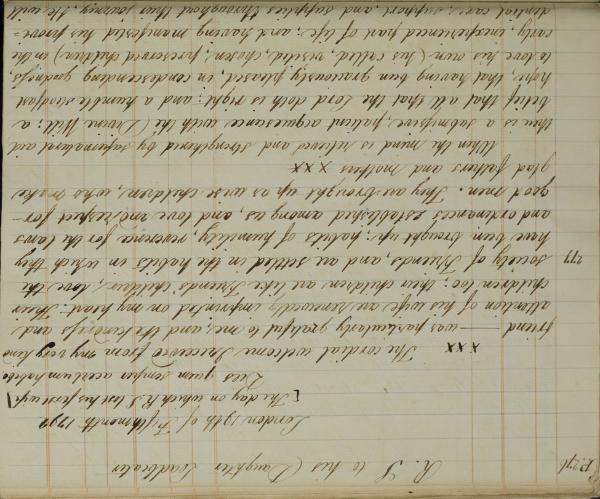 P.276 R. S. to his Daughter Leadbeater
London 19th of Fifth month 1792
[The day on which R. S. lost his first wife]
Dies quem semper acerbum habebo
xxx The cordial welcome I received from my very kind
friend —— was particularly grateful to me; and the kindness and
attention of his wife are renewedly imprinted on my heart. Their
children too; their children are like Friends' children, love the
277 society of Friends, and are settled in the habits in which they
have been brought up; habits of humility, reverence for the laws
and ordinances established among us, and love and respect for
good men. They are brought up as wise children, who make
glad fathers and mothers xxx
When the mind is relieved and strengthened by supernatural aid
there is a submissive, patient acquiescence with the Divine Will; a
belief that all that the Lord doth is right: and a humble steadfast
hope, that having been graciously pleased, in condescending goodness,
to love his own (his called, visited, chosen, preserved children) in the
early, inexperienced part of life; and, having manifested his provi=
dential care, support, and supplies throughout their journey, He will